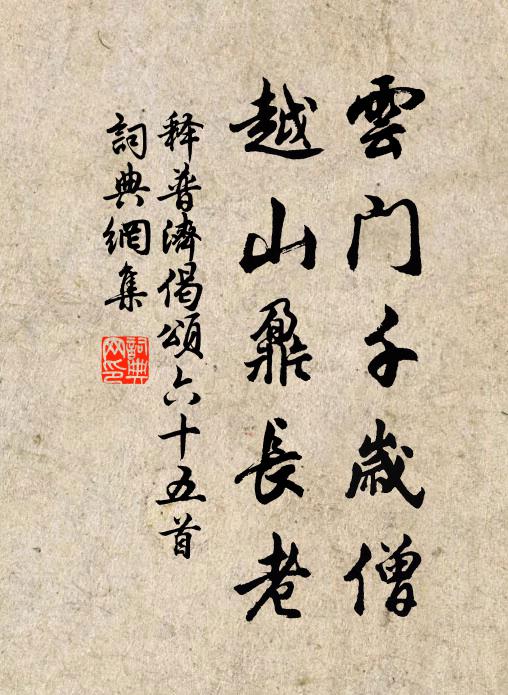 雲门千歲僧
越山鼐長老
释普濟偈頌六十五首
詞典網集
詞典网印